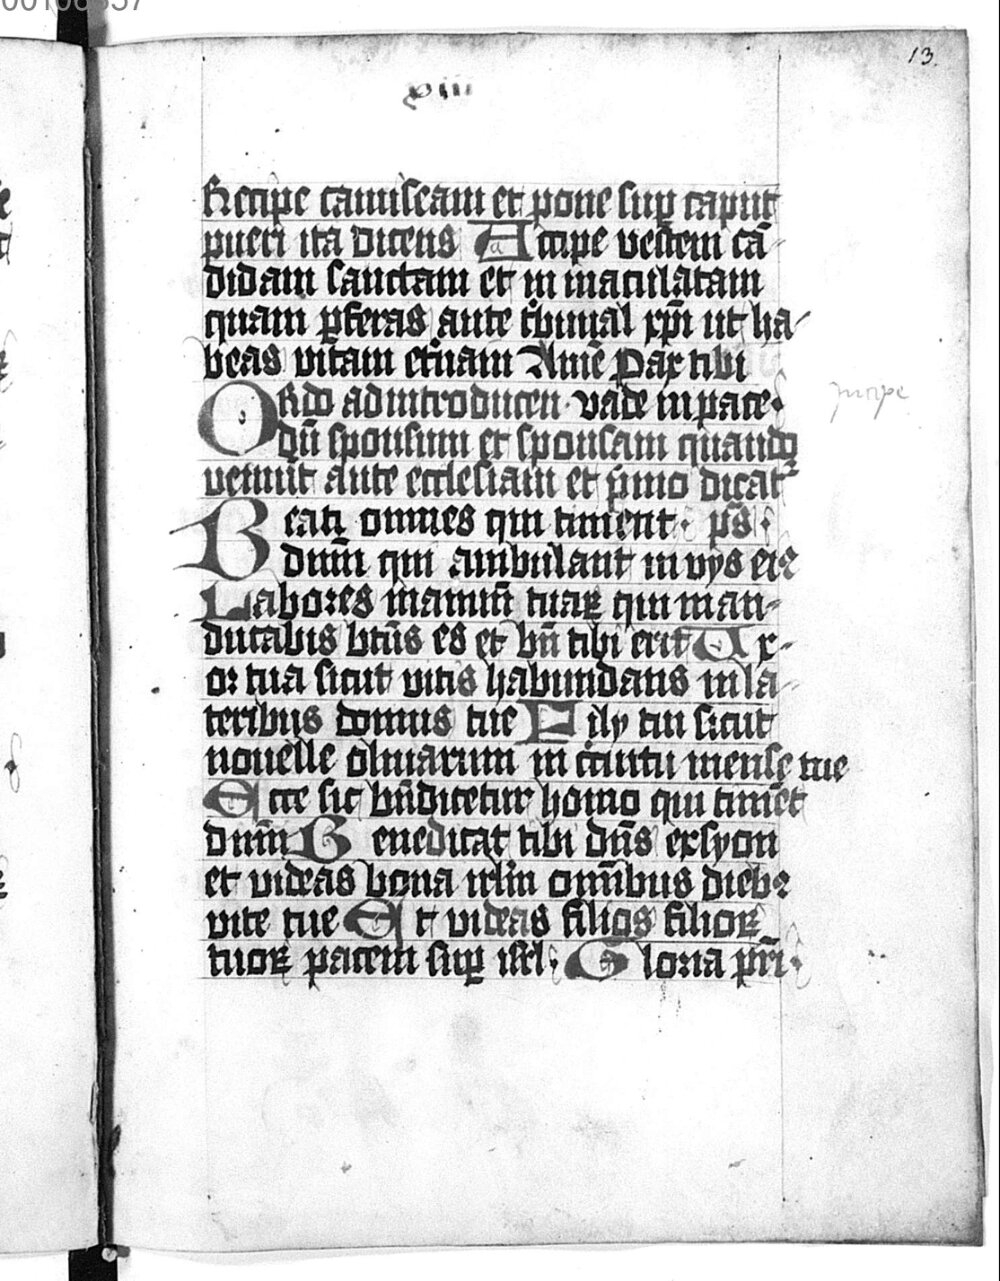 xiii
13.
Recipe camiseam et pone suꝑ caput
pueri ita dicens Accipe vestem cā-
didam sanctam et in maculatam
quam ꝑferas ante tͥbunal xp̄i ut ha-
beas vitam et̄nam Amē Pax tibi
Ordo ad introducen vade in pace
dū sponsum et sponsam quando
veniūt ante ecclesiam et pͥmo dicat᷑
Beati omnes qui timent ps̄
dnm̄ qui ambulant in vijs eiꝰ
Labores manuū tuaꝝ qui man-
ducabis bt̄us es et bn̄ tibi erit Ux-
or tua sicut vitis habundans in la-
teribus domus tue Filij tui sicut
nouelle oliuarum in circuitu mense tue
Ecce sic bn̄dicetur homo qui timēt
dnm̄ Benedicat tibi dn̄s ex syon
et videas bona irl̄m omībus diebꝰ
vite tue Et videas filios filioꝝ
tuoꝝ pacem suꝑ isrl̄ Gloria pr̄i